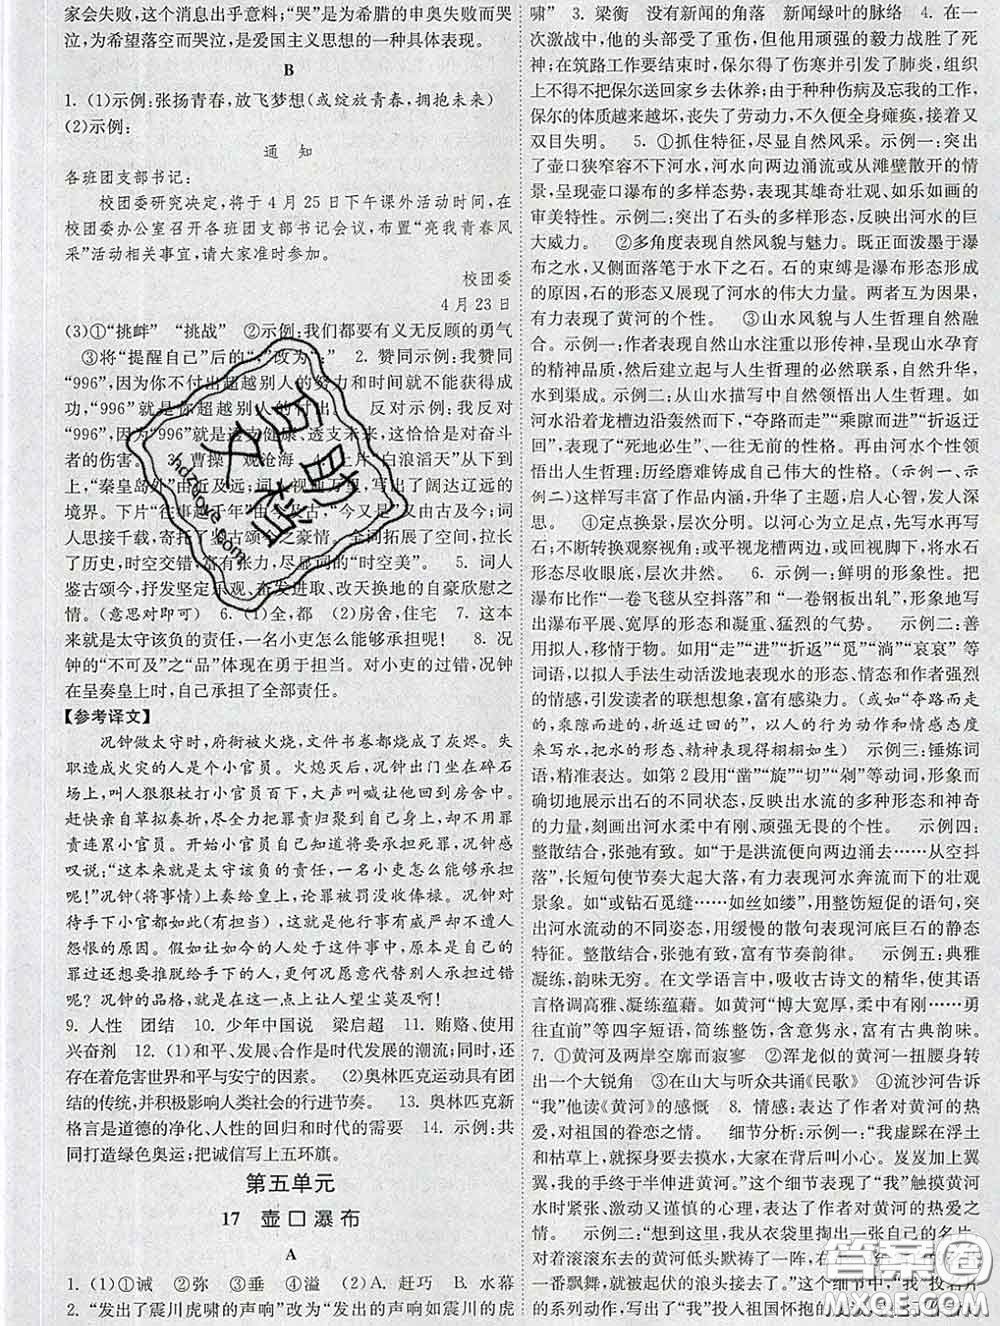 家会失败,这个消息出乎意料;“哭”是为希腊的申奥失败而哭
泣,为希望落空而哭泣,是爱国主义思想的一种具体表现。
B
1. (1)示例:张扬青春,放飞梦想(或绽放青春,拥抱未来)
(2)示例:
通 知
各班团支部书记:
校团委研究决定,将于4月25日下午课外活动时间,在
校团委办公室召开各班团支部书记会议,布置“亮我青春风
采”活动相关事宜,请大家准时参加。
校团委
4月23日
(3)①“挑衅” “挑战” ②示例:我们都要有义无反顾的勇气
③将“提醒自己”后的“,”改为“:” 2. 赞同示例:我赞同
“996”,因为你不付出超越别人的努力和时间就不能获得成
功,“996”就是你超越别人的付出。 反对示例:我反对
“996”,因为“996”就是透支健康、透支未来,这恰恰是对奋斗
者的伤害。 3. 曹操 观沧海 4. 上片“白浪滔天”从下到
上,“秦皇岛外”由近及远;词人极目万里,写出了阔达辽远的
境界。下片“往事越千年”由今及古,“今又是”又由古及今;词
人思接千载,寄托了鉴古颂今之豪情。全词拓展了空间,拉长
了历史,时空交错,富有张力,尽显词的“时空美”。 5. 词人
鉴古颂今,抒发坚定乐观、奋发进取、改天换地的自豪欣慰之
情。(意思对即可) 6. (1)全,都 (2)房舍,住宅 7. 这本
来就是太守该负的责任,一名小吏怎么能够承担呢! 8. 况
钟的“不可及”之“品”体现在勇于担当。对小吏的过错,况钟
在呈奏皇上时,自己承担了全部责任。
【参考译文】
况钟做太守时,府衙被火烧,文件书卷都烧成了灰烬。失
职造成火灾的人是个小官员。火熄灭后,况钟出来坐在碎石
场上,叫人狠狠杖打小官员百下,大声叫喊让他回到房舍中。
赶快亲自草拟奏折,尽全力把罪责归聚到自己身上,而不用罪
责连累小官员。开始小官员知道自己所犯事要承担死罪,况钟感
叹说:“这本来就是太守该负的责任,一名小吏怎么能够承担
呢!”奏折(呈给皇上)上奏给皇上,论罪被罚没收俸禄。况钟
对待手下小官都如此(有担当),这就是他行事有威严却不遭人
怨恨的原因。假如让如今的人处于这件事中,原本是自己的
罪过还想要推脱给手下的人,更何况愿意代替别人承担过错
呢?况钟的品格,就是这一点上让人望尘莫及啊!
9. 人性 团结 10. 少年中国说 梁启超 11. 贿赂、使用
兴奋剂 12. (1)和平、发展、合作是时代发展的潮流;同时,还
存在着危害世界和平与安宁的因素。 (2)奥林匹克运动具有
的传统,并积极影响人类社会的行进节奏。 13. 奥林匹克新
格言是道德的净化、人性的回归和时代的需要 14. 示例:共
同打造绿色奥运;把诚信写上五环旗。
第五单元
17 壶口瀑布
A
1. (1)①诫 ②弥 ③垂 ④溢 (2)A. 赶巧 B. 水幕
2. “发出了震川虎啸的声响”改为“发出的声响如震川的虎
啸” 3. 梁衡 没有新闻的角落 新闻绿叶的脉络 4. 在一
次激战中,他的头部受了重伤,但他用顽强的毅力战胜了死
神;在筑路工作要结束时,保尔得了伤寒并引发了肺炎,组织
上不得不把保尔送回家乡去休养;由于种种伤病及忘我的工作,
保尔的体质越来越坏,丧失了劳动力,不久便全身瘫痪,接着又
双目失明。 5. ①抓住特征,尽显自然风采。示例一:突出了
了壶口狭窄容不下河水,河水向两边涌流或从滩壁散开的情
景,呈现壶口瀑布的多样态势,表现其雄奇壮观、如乐如画的
审美特性。示例二:突出了石头的多样形态,反映出河水的巨
大威力。 ②多角度表现自然风貌与魅力。既正面泼墨于瀑
布之水,又侧面落笔于水下之石。石的束缚是瀑布形态形成
的原因,石的形态又展现了河水的伟大力量。两者互为因果,
有力表现了黄河的个性。 ③山水风貌与人生哲理自然融
合。示例一:作者表现自然山水注重以形传神,呈现山水孕育
的精神品质,然后建立起与人生哲理的必然联系,自然升华,
水到渠成。示例二:从山水描写中自然领悟出人生哲理。如
河水沿着龙槽边沿轰然而下,“夺路而走”“乘隙而进”“折返迂
回”,表现了“死地必生”、一往无前的性格。再由河水个性领
悟出人生哲理:历经磨难铸成自己伟大的性格。(示例一、示
例二)这样写丰富了作品内涵,升华了主题,启人心智,发人
深思。 ④定点换景,层次分明。以河心为立足点,先写水再写
石;不断转换观察视角;或平视龙槽两边,或回视脚下,将水石
形态尽收眼底,层次井然。 6. 示例一:鲜明的形象性。把
瀑布比作“一卷飞毯从空抖落”和“一卷钢板出轧”,形象地写
出瀑布平展、宽厚的形态和凝重、猛烈的气势。 示例二:善
用拟人,移情于物。如用“走”“进”“折返”“觅”“淌”“哀哀”等
词语,以拟人手法生动活泼地表现了水的形态,融入作者强烈
的情感,引发读者的联想想象,富有感染力。(或如“夺路而
走的,乘隙而进的,折返迂回的”,以人的行为动作和情感态度
来写水,把水的形态、精神表现得栩栩如生) 示例三:锤炼词
语,精准表达。如第2段用“凿”“旋”“切”“剁”等动词,形象而
确切地展示出石的不同状态,反映出水流的多种形态和神奇
的力量,刻画出河水柔中有刚、顽强无畏的个性。 示例四:
整散结合,张弛有致。如“于是洪流便向两边涌去……从空抖
落”,长短句使节奏大起大落,有力表现了河水奔流而下的壮观
景象。如“或钻石觅缝……如丝如缕”,用整饬短促的语句,突
出河水流动的不同姿态,用缓慢的散句表现河底巨石的静态
特征。整散结合,张弛有致,富有节奏韵律。 示例五:典雅
凝练,韵味无穷。在文学语言中,吸收古诗文的精华,使其语
言格调高雅、凝练蕴藉。如黄河“博大宽厚,柔中有刚……勇
往直前”等四字短语,简练整饬,含意隽永,富有古典韵味。
7. ①黄河及两岸空廓而寂寥 ②浑龙似的黄河一扭腰身转
出一个大锐角 ③在山大与听众共诵《民歌》 ④流沙河告诉
“我”他读《黄河》的感慨 8. 情感:表达了作者对黄河的热
爱,对祖国的眷恋之情。 细节分析:示例一:“我虚踩在浮土
和枯草上,就探身要去摸水,大家在背后叫小心。岌岌加上翼
翼,我的手终于半伸进黄河。”这一个细节写出“我”触摸黄河
时紧张、激动又谨慎的情态,表达了作者对黄河的热爱之
情。 示例二:“想到这里,我从衣袋里掏出一张自己的名片,
对着滚滚东去的黄河低头默祷了一阵,右手一扬,雪白的名片
一番飘舞,就被起伏的浪头接去了。”这个细节中,“我”投名片
的系列动作,写出了“我”投入祖国怀抱的